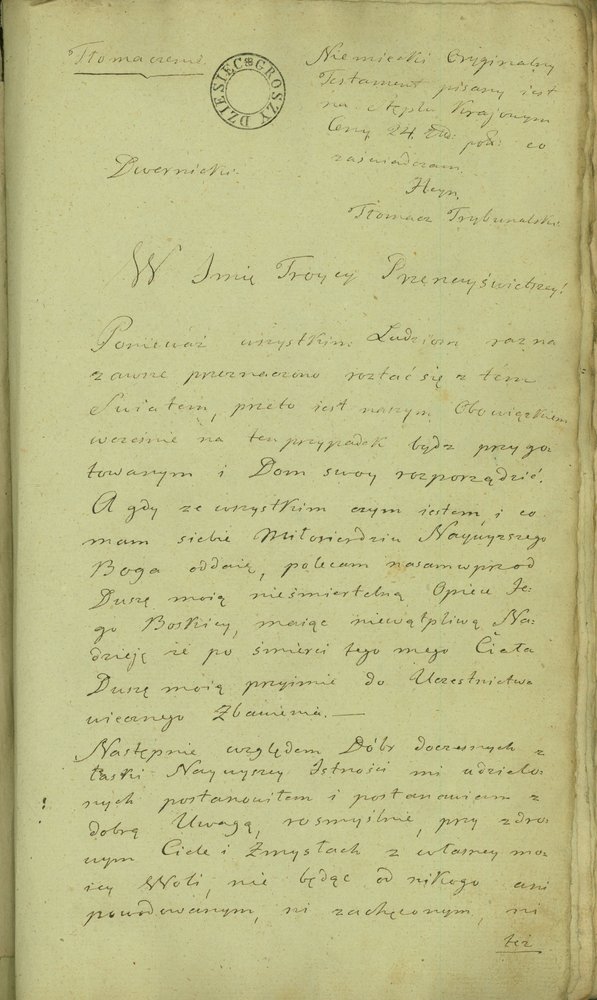 Tłomaczenie
DZIESIĘC GROSZY
Niemiecki Oryginalny
Testament pisany iest
na stęplu Kraiowym
Ceny 24. Złł: pol: co
zaświadczam.
Heyn.
Tłomacz Trybunalski.
Dwernicki.
W Imię Troycy Przenayświetszey!
Ponieważ wszystkim Ludziom raz na
zawsze przeznaczono roztać się z tém
Swiatem, przeto iest naszym Obowiązkiem
wcześnie na ten przypadek bydz przygo-
towanym i Dom swoy rozporządzić.
A gdy ze wszystkim czym iestem, i co
mam siebie Miłosierdziu Naywyzszego
Boga oddaię, polecam nasamwprzod
Duszę moią nieśmiertelną Opiece Je-
go Boskiey, maiąc niewątpliwą Na-
dzieję że po śmierci tego mego Ciała
Duszę moią przyimie do Uczestnictwa
wiecznego Zbawienia. —
Następnie względem Dóbr doczesnych z
łaski Naywyzszey Istności mi udzielo-
nych postanowiłem i postanawiam z
dobrą Uwagą, rosmyślnie, przy zdro-
wym Ciele i Zmysłach z własney mo-
iey Woli, nie będąc od nikogo ani
powodowanym, ni zachęconym, ni
też